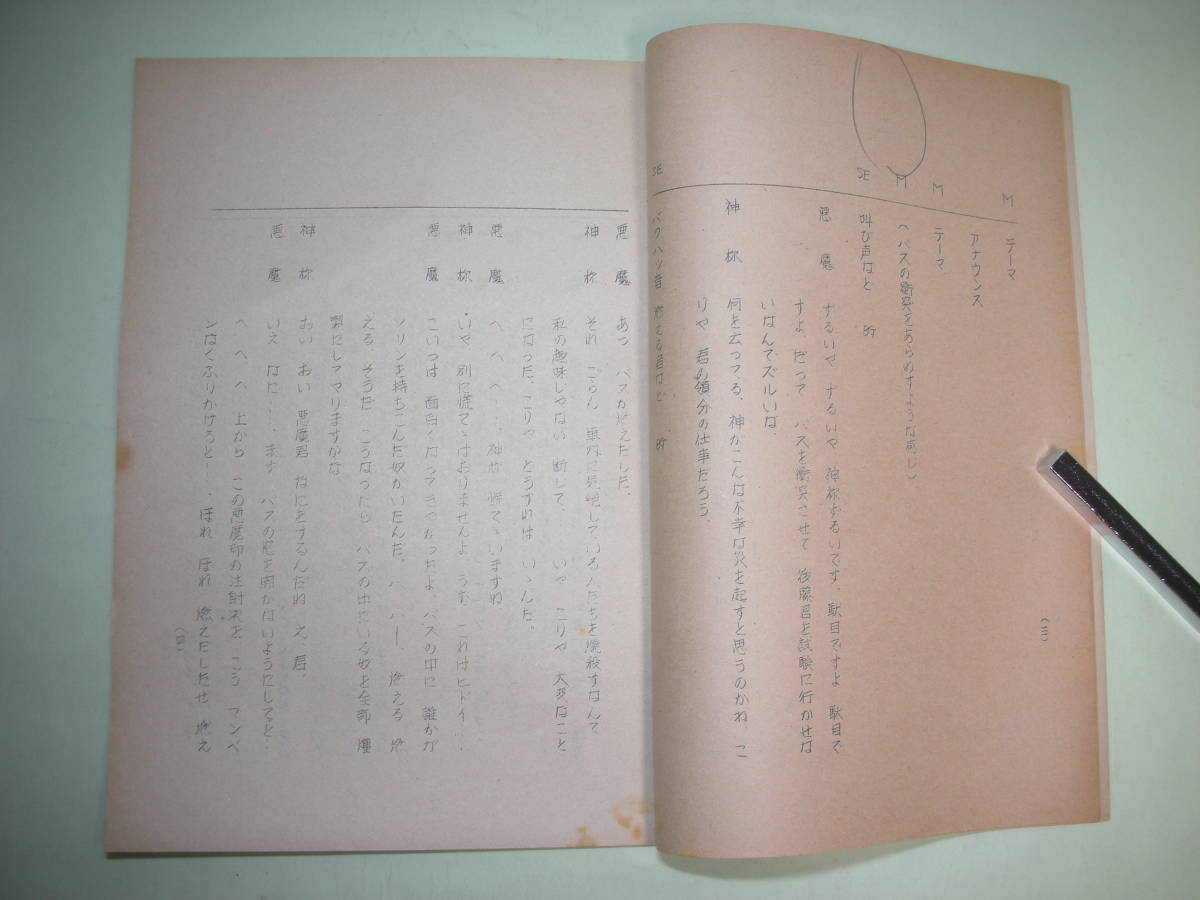 M テーマ
アナウンス
M テーマ
M (バスの衝突をあらわすような感じ)
SE 叫び声など
悪魔 ずるいや ずるいや 神様ずるいです、駄目ですよ 駄目で
すよ、だって バスを衝突させて 後藤君を試験に行かせな
いなんてズルいな、
神様 何を云ってる、神がこんな不幸な災を起すと思うのかね、こ
りや 君の領分の仕事だろう、
SE バクハツ音 燃える音など
(三)
悪魔 あっ バスが燃えだした、
神様 それ ごらん、車内に気絶している人たちを焼殺すなんて
私の趣味じゃない 断じて、 いや こりや 大変なこと
になった、こりや どうすれば いゝんだ。
悪魔 ヘ、ヘ、ヘ、神様 慌てゝいますね
神様 いや 別に慌てゝはおりませんよ、うす、これはヒドイ…
悪魔 こいつは 面白くなってきやがったよ、バスの中に 誰かガ
ソリンを持ちこんだ奴がいたんだ、ハ ハー、燃える 燃
える、そうだ こうなったら バスの中にいる奴を全部 燻
製にしてヤリますかな
神様 おい おい 悪魔君 なにをするんだね え 君、
悪魔 いえ なに… まず バスの窓を開かないようにしてと…
ヘ、ヘ、上から この悪魔印の注射液を こう マンベ
ンなくふりかけると…、ほれ ほれ 燃えだしたぜ 燃え
(四)